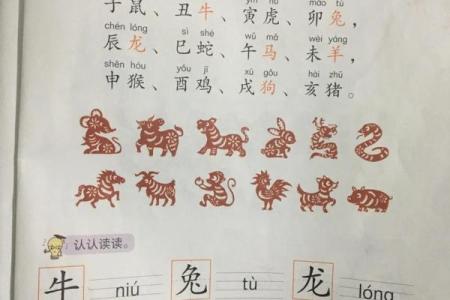 子鼠、丑牛、寅虎、卯兔，
chén lóng sì shé wǔ mǎ wèi yáng
辰龙、巳蛇、午马、未羊，
shēn hóu yǒu jī xū gǒu hài zhū
申猴、酉鸡、戌狗、亥猪。
认认读读。
牛 niú 兔 tù 龙 lóng